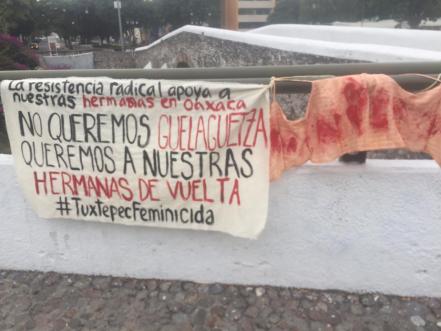 La resistencia radical apoya a
nuestras hermanas en Oaxaca
NO QUEREMOS GUELAGUETZA
QUEREMOS A NUESTRAS
HERMANAS DE VUELTA
#TuxtepecFeminicida